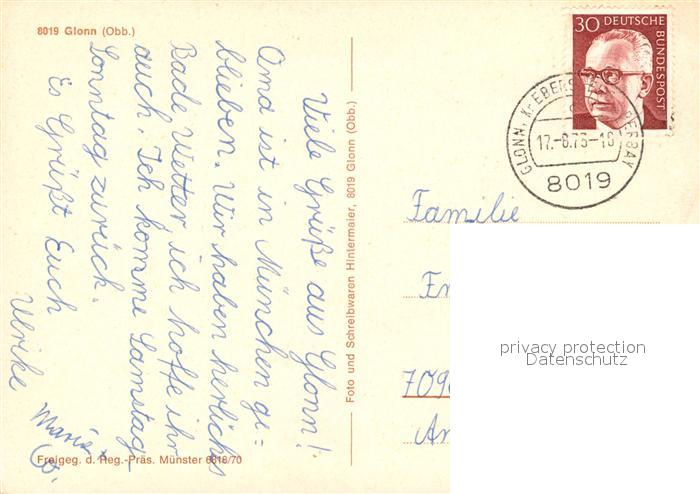 8019 Glonn (Obb.)
Viele Grüße aus Glonn!
Oma ist in München ge=
blieben. Wir haben herliches
Bade Wetter, ich hoffe ihr
auch. Ich komme Samstag
Sonntag zurück.
Es Grüßt Euch
Ulrike
Maria
Freigeg. d. Reg.-Präs. Münster 6818/70
Foto und Schreibwaren Hintermaier, 8019 Glonn (Obb.)
30 DEUTSCHE
BUNDESPOST
GLONN, Kr EBERS
ERBAY
8019
Familie
709
privacy protection
Datenschutz